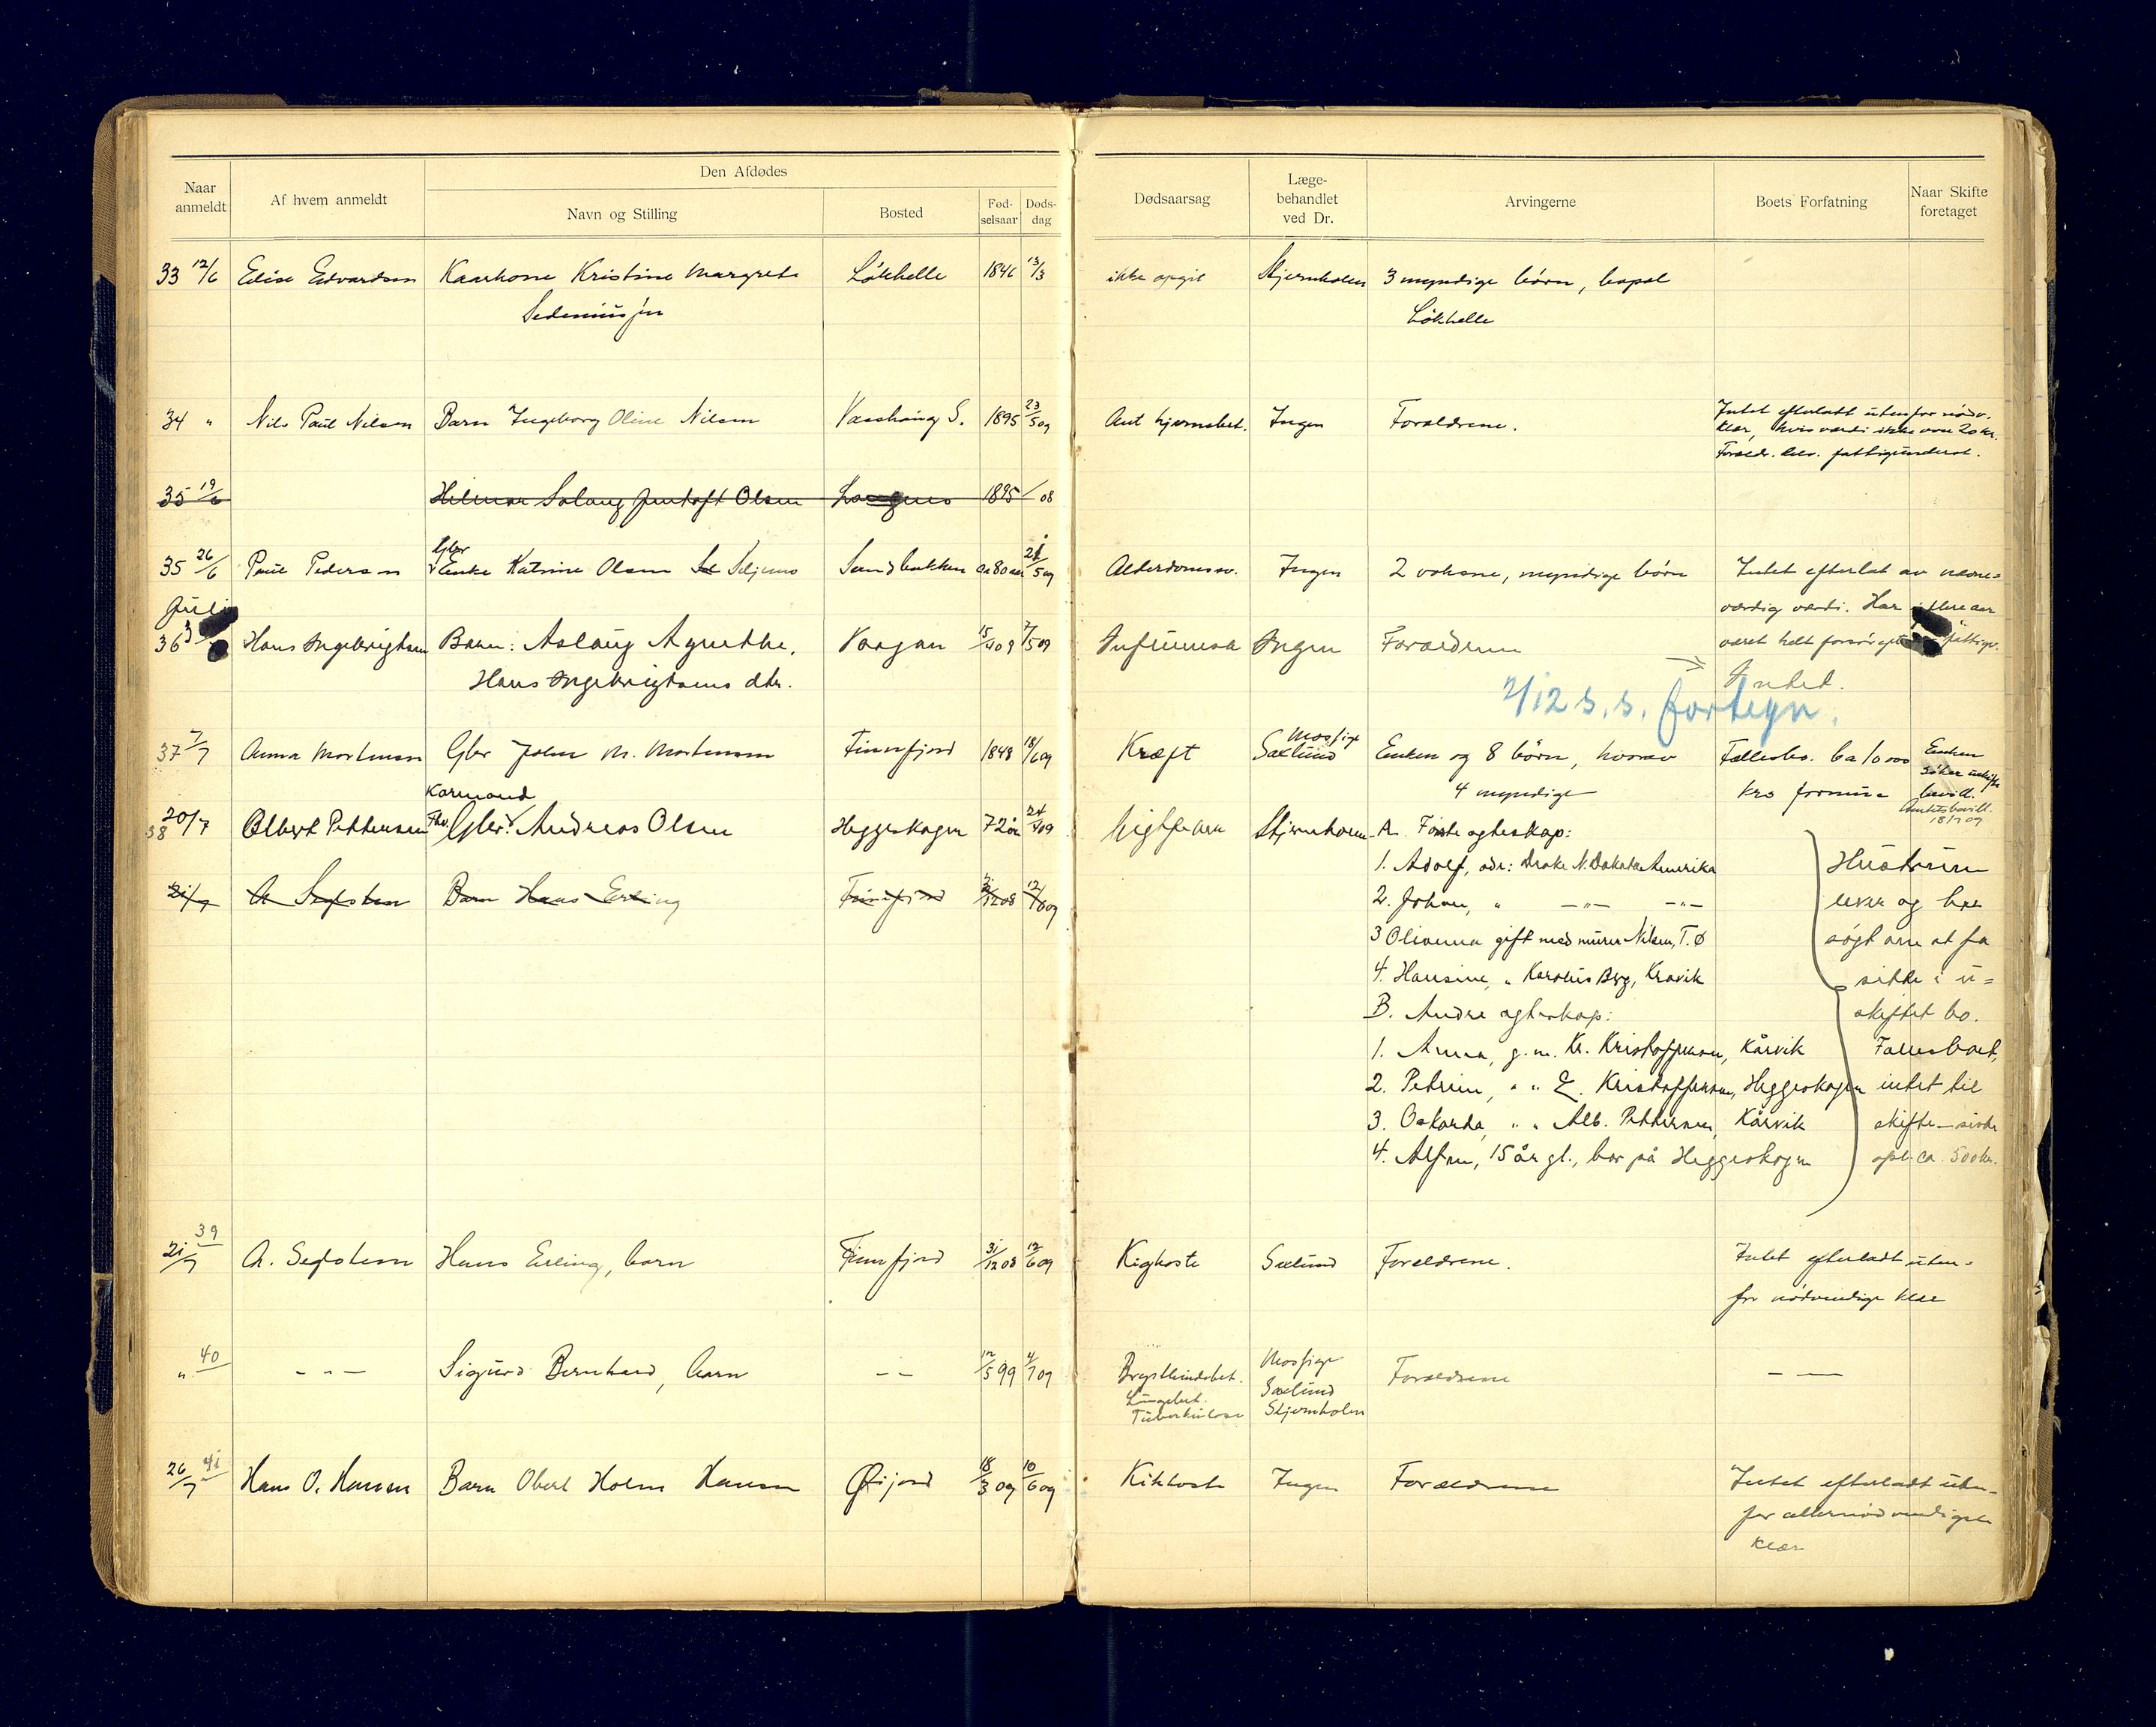 Naar anmeldt
Af hvem anmeldt
Den Afdødes
Navn og Stilling
Bosted
Fød-selsaar
Døds-dag
Dødsaarsag
Læge-behandlet ved Dr.
Arvingerne
Boets Forfatning
Naar Skifte foretaget
33 12/6 Elise Edvardsen Kaarkone Kristine Margrete Løkhelle 1846 13/3 ikke opgit Stjernholm 3 myndige börn, bopæl
Løkhelle
34 " Nils Paul Nilsen Barn Ingeborg Oline Nilsen 1895 23/5 09 Ingen Forældrene. Intet efterladt utenfor nødv.
klær, hvis værdi ikke over 20 kr.
35 19/6 Hilmar Solaug Olsen 1895 / 08
35 26/6 Paul Pedersen Enke Katrine Olsen Seljenes Sandbakken ca 80 aar 21/5 09 Alderdomssv. Ingen 2 voksne, myndige börn Intet efterlat av nævne-
værdig værdi. Har i flere aar
Juli
36 3 Hans Ingebrigtsen Barn: Aslaug Agnethe, Vaagan 15/4 09 7/5 09 Influensa Ingen Forældrene været helt forsörget
Hans Ingebrigtsens dtr. Intet.
2/12 s. s. fortegn.
37 7/7 Anna Mortensen Gbr John M. Mortensen Finnfjord 1848 18/6 09 Kræft Mossige
Saxlund Enken og 8 börn, hvorav
4 myndige Fællesbo. Ca 10 000
kro formue Enken
söker uskifte
bevill.
Amtets bevill.
18/7 09
38 20/7 Albert Pettersen Kårmand
Gbr. Andreas Olsen Heggeskogen 72 år 24/4 09 Stjernholm A. Förste egteskap:
1. Adolf, adr: Drake N. Dakota Amerika
2. Johan, " —"— —"—
3 Olianna gift med murer Nilsen, T.ø
4. Hansine, " Karolius Berg, Kravik
B. Andre egteskap:
1. Anna, g. m. Kr. Kristoffersen, Kårvik
2. Petrine, " " E. Kristoffersen, Heggeskogen
3. Oskarda, " " Alb. Pettersen, Kårvik
4. Alfon, 15 år gl., bor på Heggeskogen
Hustruen
lever og har
søgt om at få
sitte i u-
skiftet bo.
Fællesboet,
intet til
skifte – siste
opl. ca 500 kr.
21/7 A Segstem Barn Hans Erling Finnfjord 31/12 08 12/6 09
39
21/7 A. Segstem Hans Erling, barn Finnfjord 31/12 08 12/6 09 Kighoste Saxlund Forældrene. Intet efterladt uten-
for nödvendige klær
" 40 - " - Sigurd Bernhard, barn - - 12/5 99 4/7 09 Brysthindebet.
Lungebet.
Tuberkulose Mossige
Saxlund
Stjernholm Forældrene - —
26/7 41 Hans O. Hansen Barn Obert Holm Hansen Øijord 18/3 09 10/6 09 Kikhoste Ingen Forældrene Intet efterladt uten-
for allernødvendigste
klær